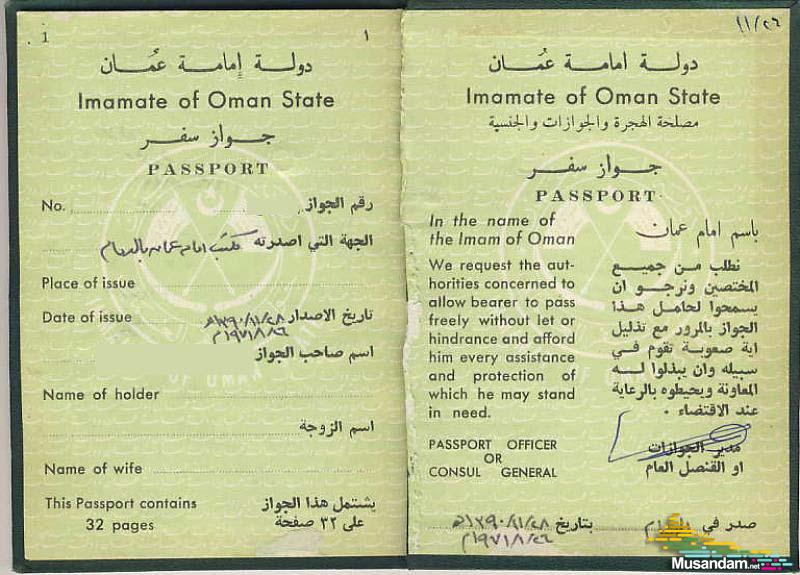 1
١
دولة إمامة عُمان
Imamate of Oman State
جواز سفر
PASSPORT
No.
رقم الجواز
الجهة التي اصدرته مكتب امامة عمان بالدمام
Place of issue
Date of issue
تاريخ الاصدار ١٣٩٠/١١/٢٨هـ
١٩٧١/٨/٢٦م
اسم صاحب الجواز
OF OMAN
Name of holder
اسم الزوجة
Name of wife
This Passport contains
32 pages
يشتمل هذا الجواز
على ٣٢ صفحة
١١/٢٦
دولة امامة عُمان
Imamate of Oman State
مصلحة الهجرة والجوازات والجنسية
جواز سفر
PASSPORT
In the name of
the Imam of Oman
باسم امام عمان
We request the aut-
horities concerned to
allow bearer to pass
freely without let or
hindrance and afford
him every assistance
and protection of
which he may stand
in need.
نطلب من جميع
المختصين ونرجو ان
يسمحوا لحامل هذا
الجواز بالمرور مع تذليل
اية صعوبة تقوم في
سبيله وان يبذلوا له
المعاونة ويحيطوه بالرعاية
عند الاقتضاء .
PASSPORT OFFICER
OR
CONSUL GENERAL
مدير الجوازات
او القنصل العام
صدر في
بتاريخ ١٣٩٠/١١/٢٨هـ
١٩٧١/٨/٢٦م
Musandam.net